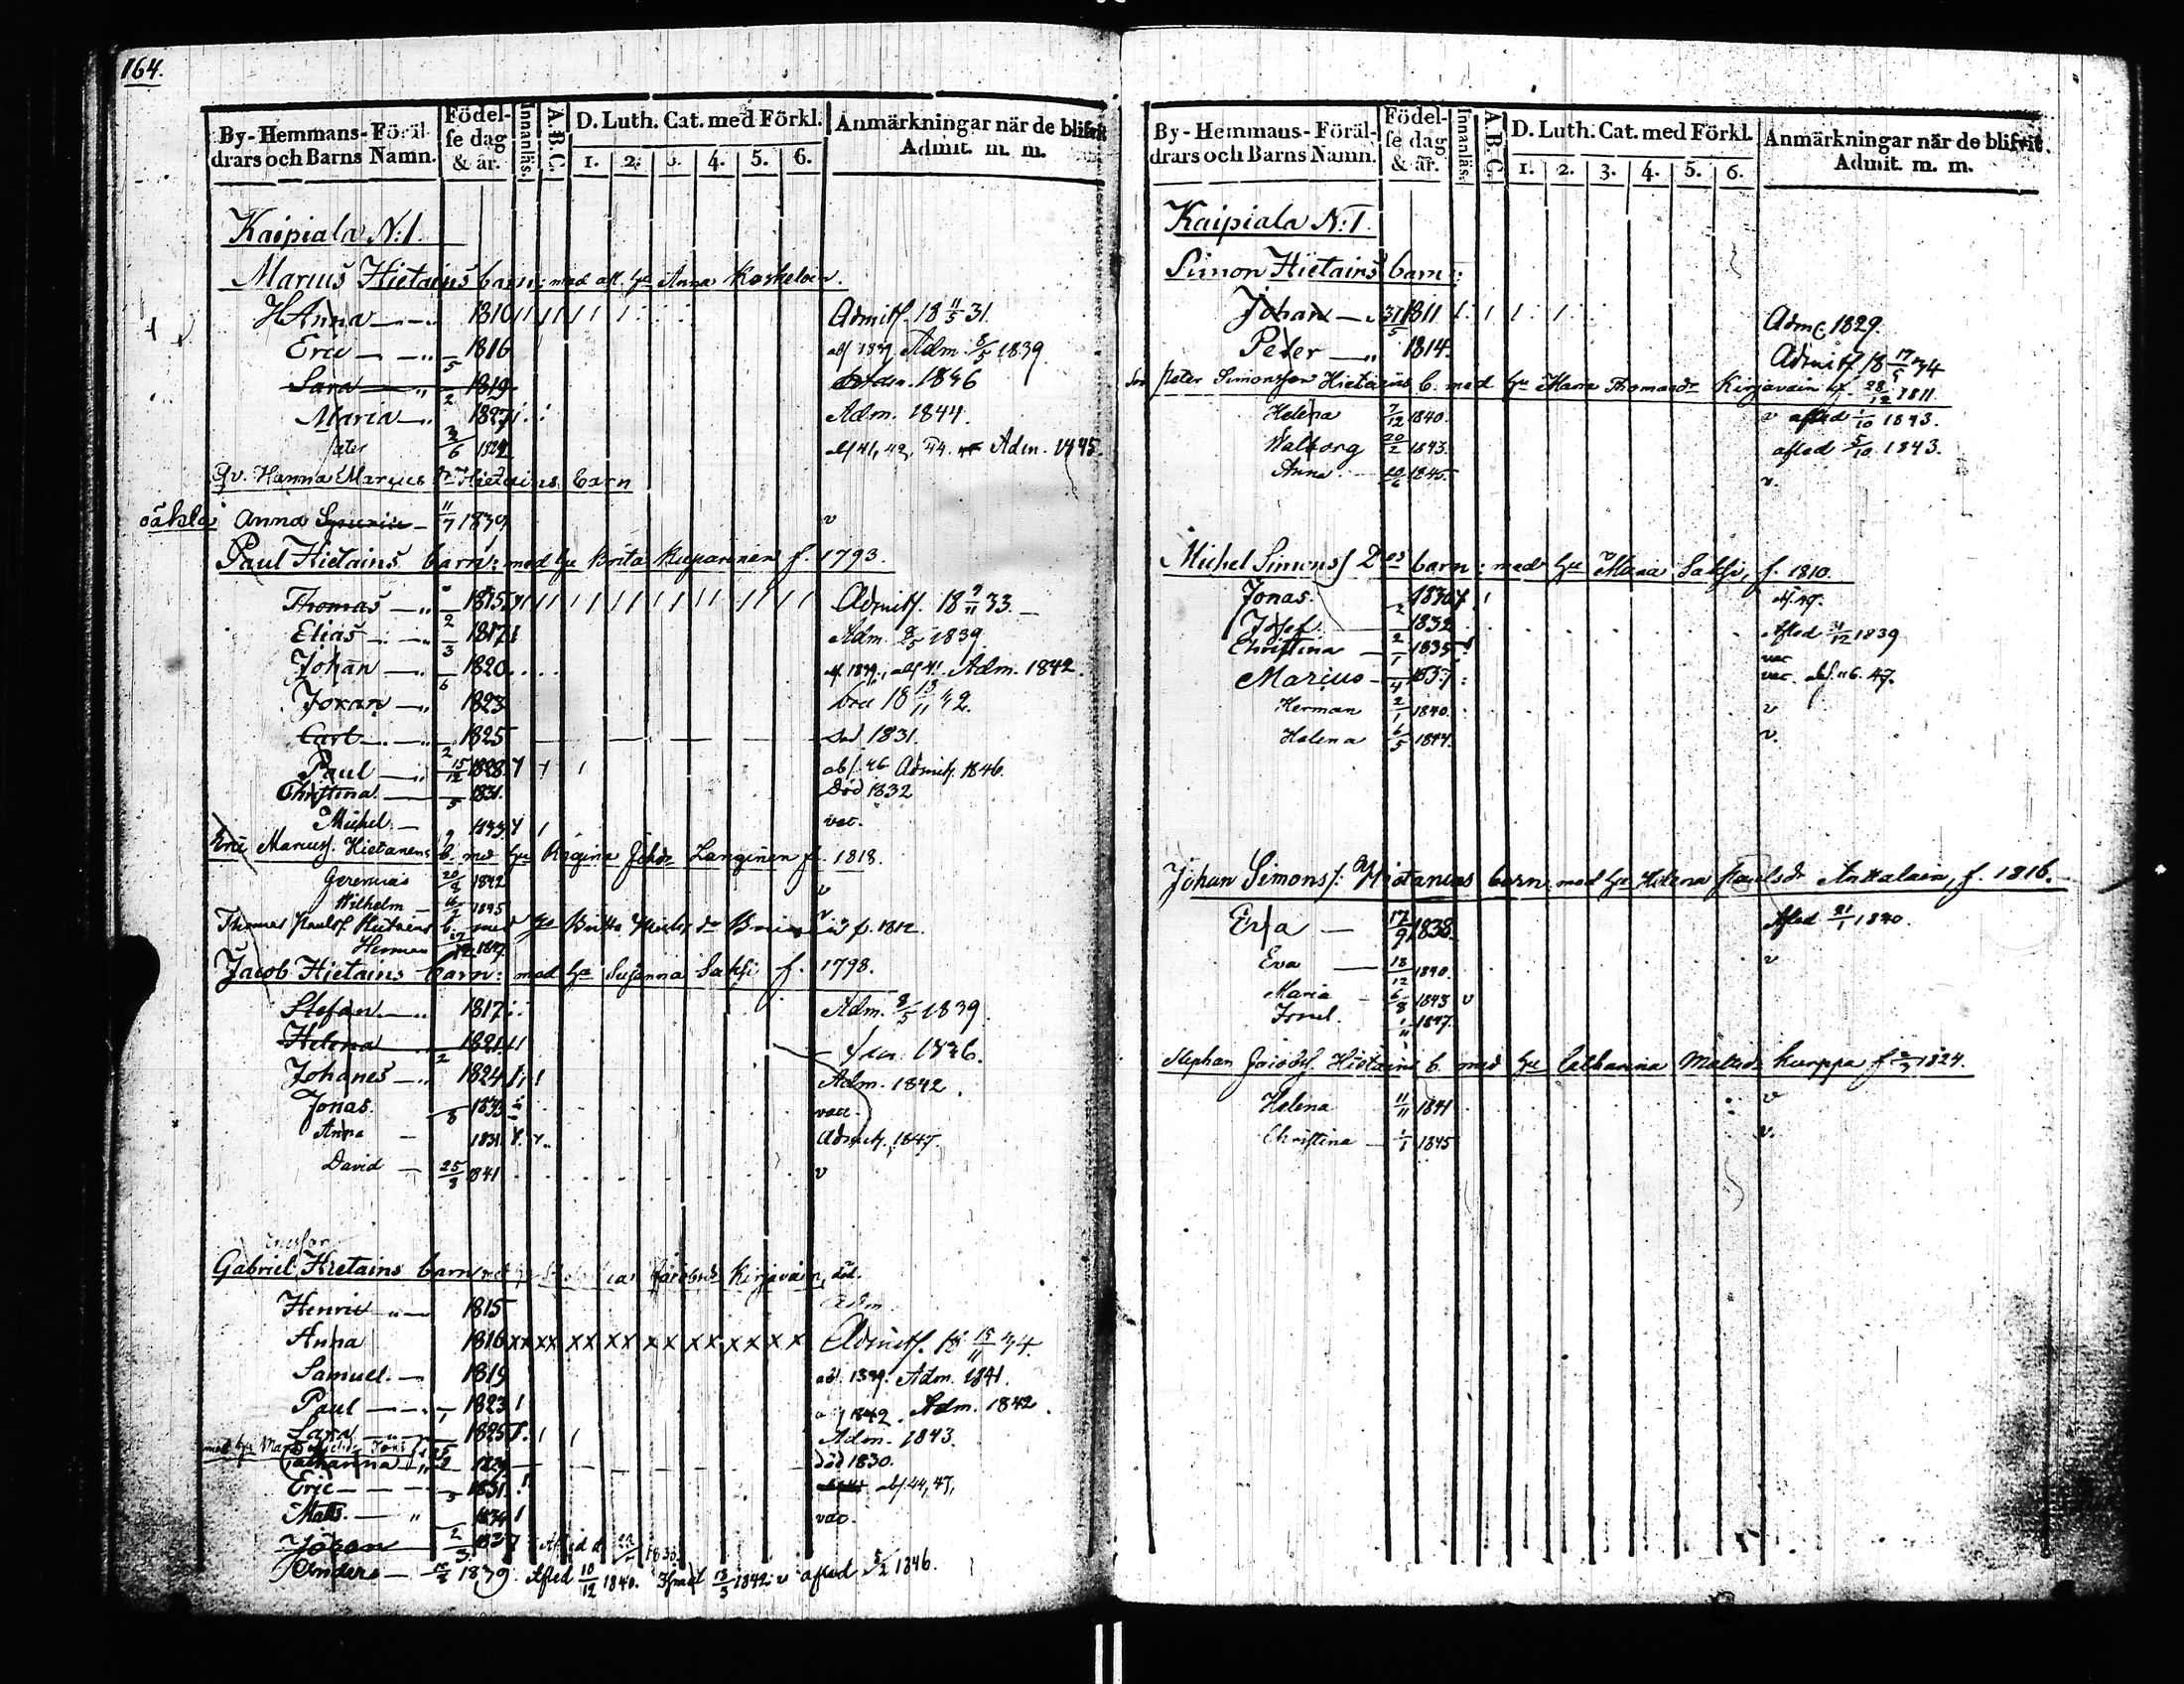 164.
By-Hemmans-Föräl-
drars och Barns Namn.
Födel-
se dag
& år.
Innanläs.
A.B.C.
D. Luth. Cat. med Förkl.
1. 2. 3. 4. 5. 6.
Anmärkningar når de blifvit
Admit. m. m.
Kaipiala N:1.
Marius Hietains barn: med afl. hu Anna Koskelain.
H Anna 1810 Admitt. 18 11/5 31.
Eric 5 1816 abs 1839. Adm. 8/5 1839
Sara 2 1819 1836
Maria 1827 Adm. 1844.
Peter 3/6 1829 abs 41, 42, 44. Adm. 1845
Qv. Hanna Marius dr Hietains barn
oäkta Anna 11/7 1839 v
Paul Hietains barn: med hu Brita Kuparinen f. 1793.
Thomas 2 1815 Admitt. 18 9/11 33.
Elias 3 1817 Adm. 8/5 1839
Johan 6 1820 abs 1839, abs 41. Adm. 1842.
Jöran 1823 18 13/11 42.
Carl 2 1825 död 1831.
Paul 15/12 1828 abs. 46 Admitt. 1846.
Christina 5 1831. Död 1832
Michel 9 1833 vac.
Eric Mariuss. Hietanens b. med hu Regina Johdr Langinen f. 1818.
Jeremias 20/8 1842 v
Wilhelm 1845 v
Thomas Paulss. Hietains b. med hu Britta f. 1812.
Herman 1847.
Jacob Hietains barn: med hu Susanna Saksi f. 1798.
Stefan 1817 Adm. 8/5 1839.
Helena 2 1821 1836.
Johanes 1824 Adm. 1842.
Jonas 8 1833 vac.
Anna 1831 Admitt. 1847.
David 25/8 1841 v
Ericsson
Gabriel Hietains barn Jacobsdr Kirjavain, död.
Henric 1815 Adm
Anna 1816 xx xx xx xx xx xx xx x Admitt. 18 15/11 34.
Samuel 1819 abs. 1839. Adm. 1841.
Paul 1 1823 1842. Adm. 1842.
Sara 1825 Adm. 1843.
med hu
Catharina 2 1829 död 1830.
Eric 3 1831 abs 44, 47,
Matts 1834 vac.
Jöran 2/3 1837 Afled d.
Anders 1839 Afled 10/12 1840. Israel 13/3 1842 v afled 5/2 1846.
By-Hemmans-Föräl-
drars och Barns Namn.
Födel-
se dag
& år.
Innanläs.
A.B.C.
D. Luth. Cat. med Förkl.
1. 2. 3. 4. 5. 6.
Anmärkningar når de blifvit
Admit. m. m.
Kaipiala N:1.
Simon Hietains barn:
Johan 31/5 1811 Adm. 1829.
Peter 1814 Admitt 18 17/5 34
Peter Simonsson Hietains b. med hu Maria Thomasdr Kirjavain f. 28/12 1811
Helena 7/12 1840. v afled 1/10 1843.
Walborg 20/2 1843. afled 5/10 1843.
Anna 20/6 1845. v.
Michel Simonss. barn: med hu Maria Saksi, f. 1810.
Jonas 2 1830 abs. 47.
Josef 1832 Afled 31/12 1839
Christina 1 1835 vac
Marius 4 1837 vac. abs. 46. 47.
Herman 2/1 1840. v
Helena 6/5 1844. v.
Johan Simons s: Hietanens barn med hu Helena Paulsdr Ankalain, f. 1816.
Eva 17/9 1838 Afled 21/1 1840.
Eva 18/12 1840. v
Maria 6/8 1843 v
Israel 1847.
Stephan Jacobss. Hietains b. med hu Catharina Mattsdr Kurppa f 1824.
Helena 11/11 1841 v
Christina 1/1 1845 v.